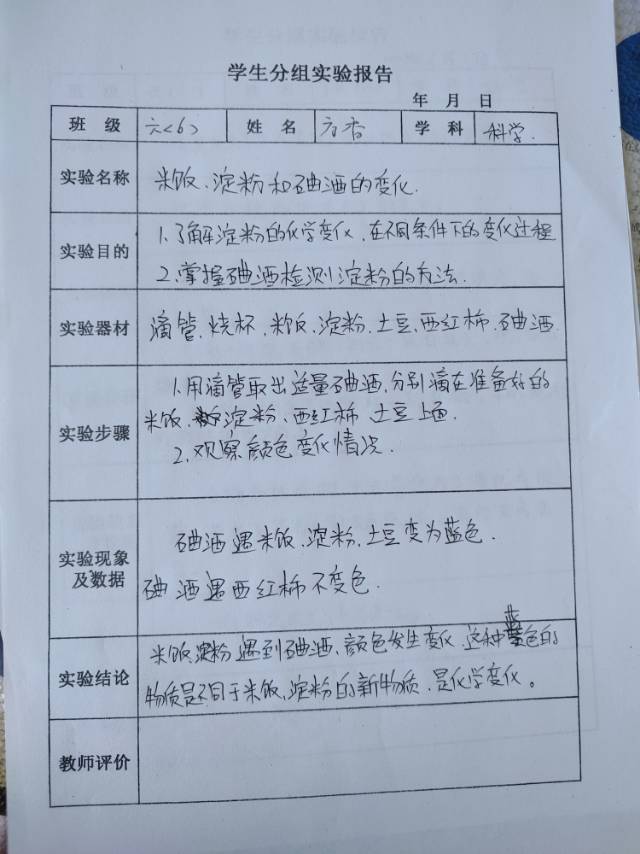 学生分组实验报告
年 月 日
班 级 六<6> 姓 名 方香 学 科 科学.
实验名称 米饭、淀粉和碘酒的变化.
实验目的 1、了解淀粉的化学变化,在不同条件下的变化过程
2、掌握碘酒检测淀粉的方法.
实验器材 滴管、烧杯、米饭、淀粉、土豆、西红柿、碘酒
实验步骤 1、用滴管取出适量碘酒,分别滴在准备好的
米饭、淀粉、西红柿、土豆上面.
2、观察颜色变化情况.
实验现象 碘酒遇米饭、淀粉、土豆变为蓝色.
及数据 碘酒遇西红柿不变色.
实验结论 米饭、淀粉遇到碘酒、颜色发生变化,这种蓝色的
物质是不同于米饭、淀粉的新物质,是化学变化。
教师评价